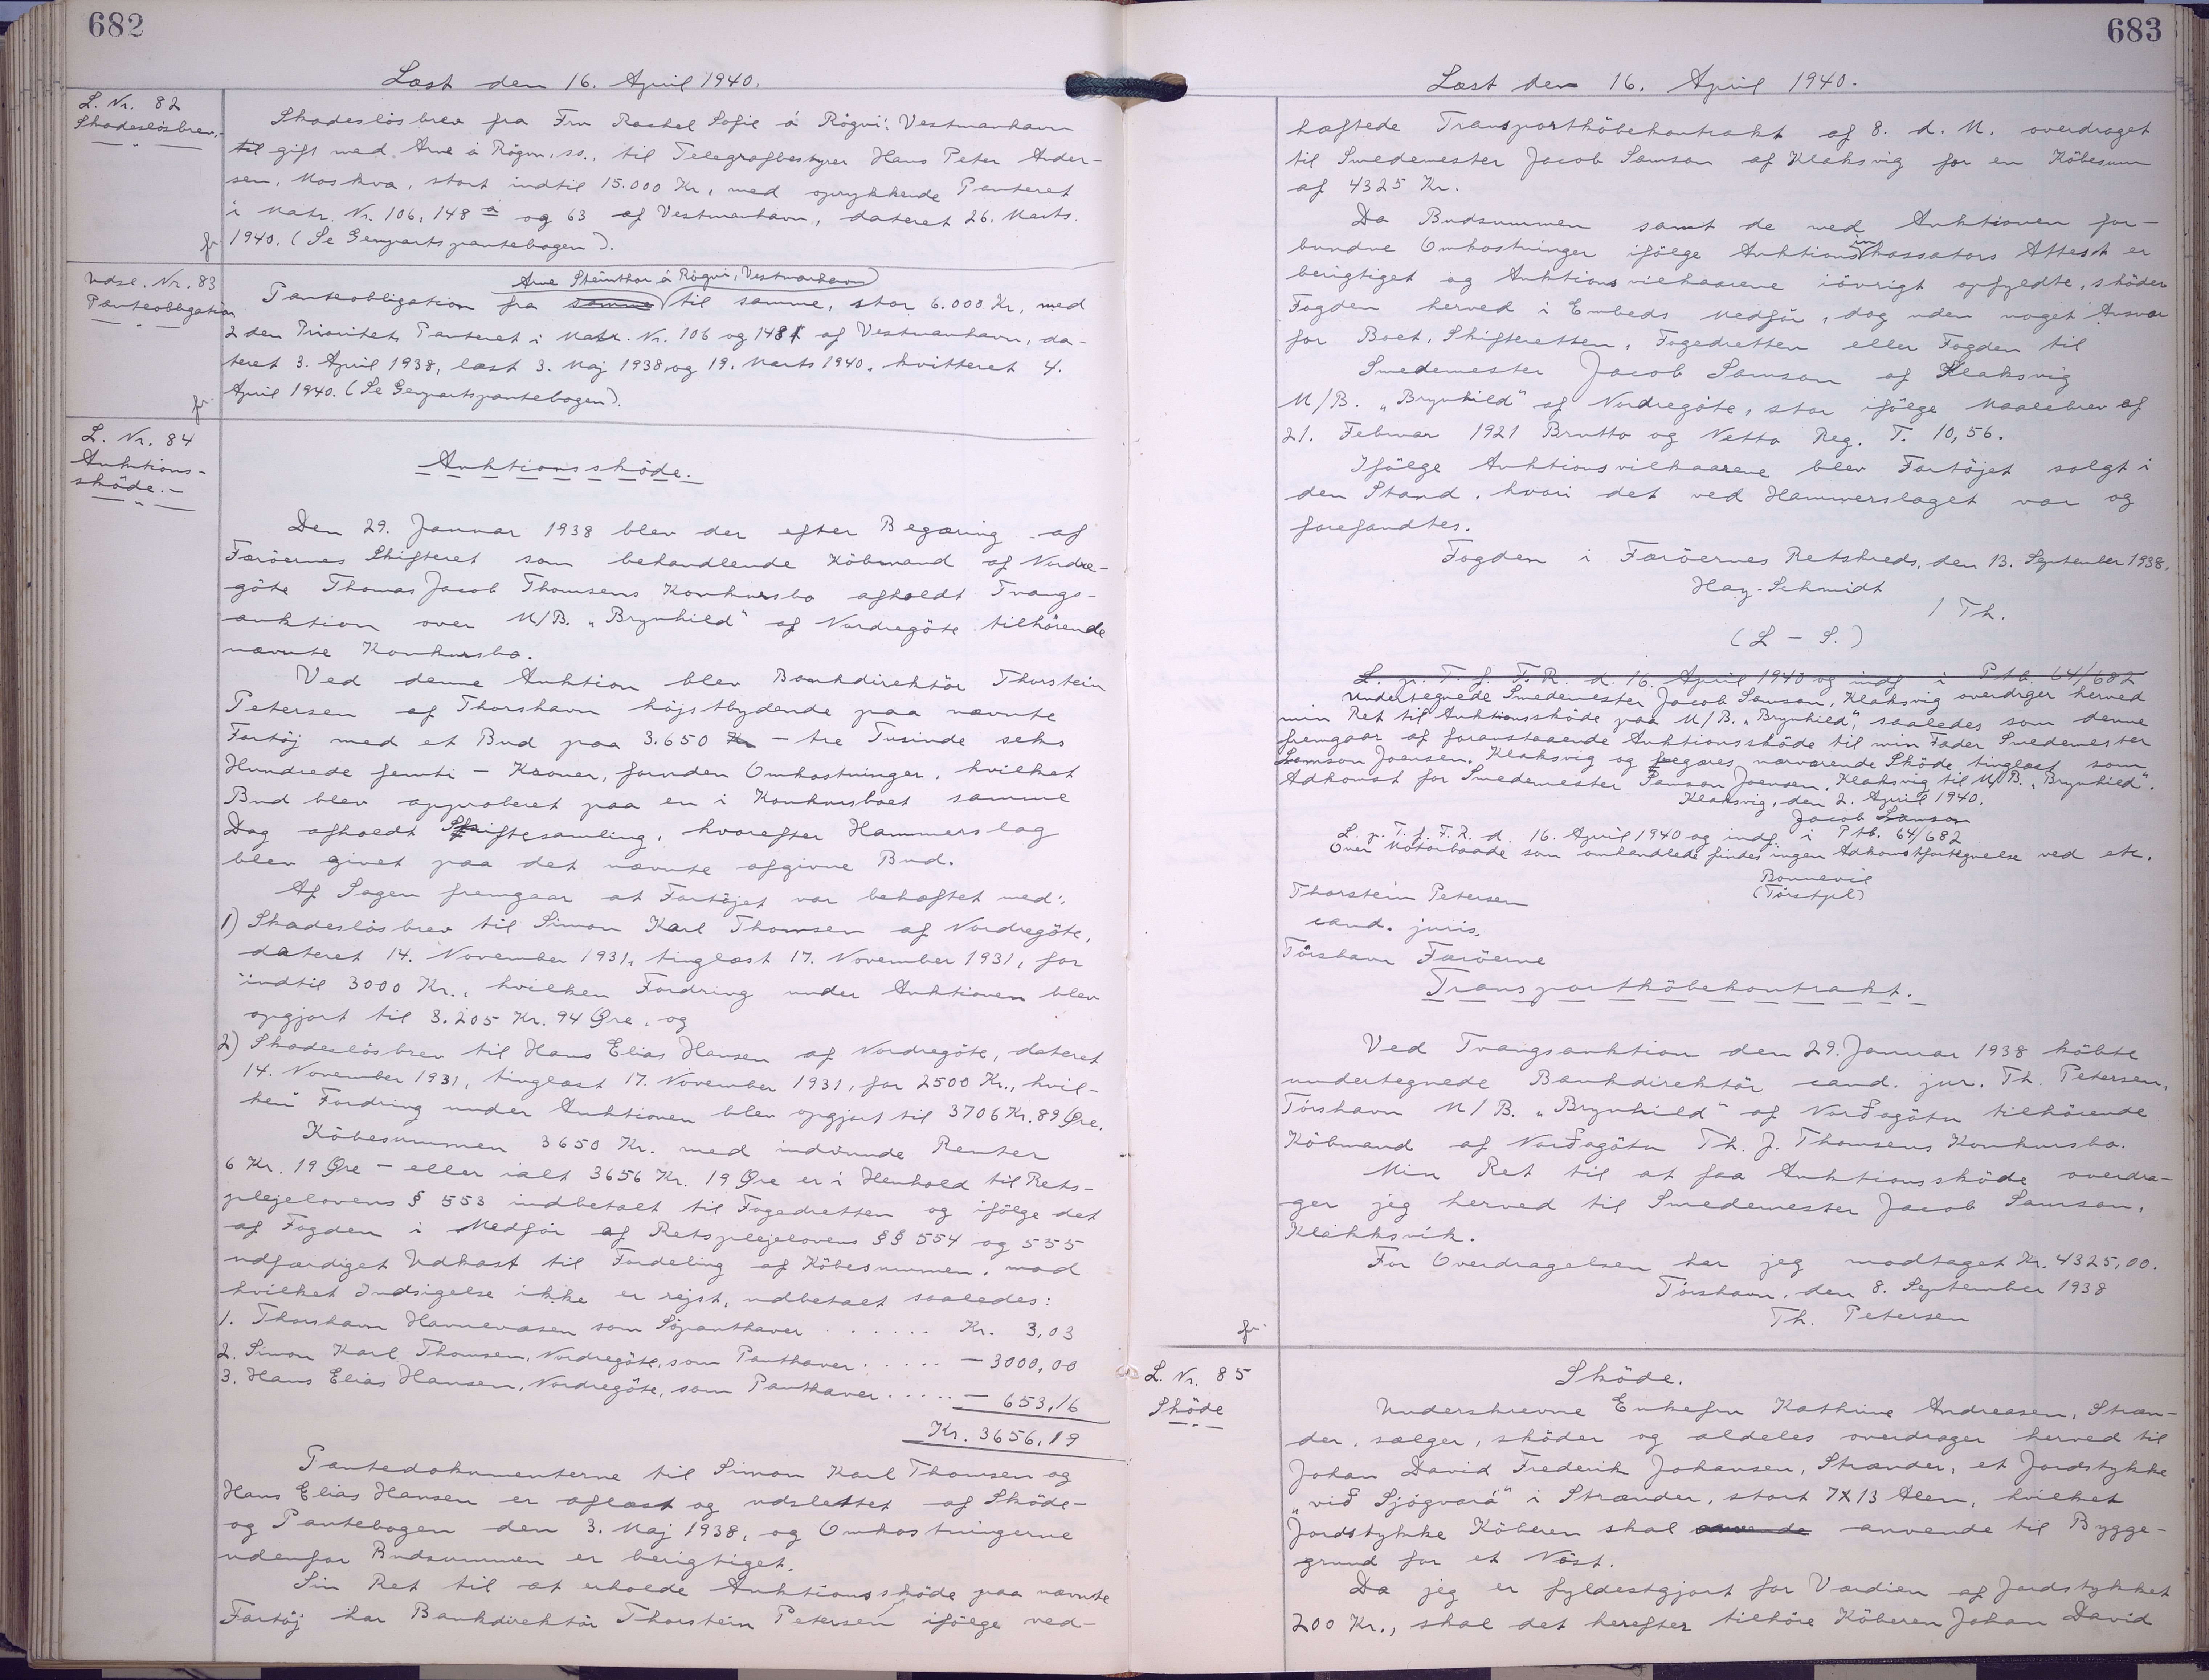 682
Læst den 16. April 1940.
L. Nr. 82
Skadeslösbrev.-
Skadeslösbrev fra Fru Rachel Sofie á Rógvi, Vestmanhavn
til gift med Arne á Rógvi, ss., til Telegrafbestyrer Hans Peter Ander-
sen, Moskva, stort indtil 15.000 Kr., med oprykkende Panteret
i Matr. Nr. 106, 148 a og 63 af Vestmanhavn, dateret 26. Marts
1940. (Se Genpartspantebogen).
Udsl. Nr. 83
Panteobligation
Arne Steinthor á Rógvi, Vestmanhavn
Panteobligation fra samme til samme, stor 6.000 Kr., med
2 den Prioritets Panteret i Matr. Nr. 106 og 148 af Vestmanhavn, da-
teret 3. April 1938, læst 3. Maj 1938, og 19. Marts 1940. kvitteret 4.
April 1940. (Se Genpartspantebogen).
L. Nr. 84
Auktions-
sköde.-
Auktionssköde.
Den 29. Januar 1938 blev der efter Begæring af
Færöernes Skifteret som behandlende Köbmand af Nordre-
göte Thomas Jacob Thomsens Konkursbo afholdt Tvangs-
auktion over M/B. „Brynhild" af Nordregöte tilhörende
nævnte Konkursbo.
Ved denne Auktion blev Bankdirektör Thorstein
Petersen af Thorshavn höjstbydende paa nævnte
Fartöj med et Bud paa 3.650 Kr - tre Tusinde seks
Hundrede femti - Kroner, foruden Omkostninger, hvilket
Bud blev approberet paa en i Konkursboet samme
Dag afholdt Skiftesamling, hvorefter Hammerslag
blev givet paa det nævnte afgivne Bud.
Af Sagen fremgaar at Fartöjet var behæftet med:
1) Skadeslösbrev til Simon Karl Thomsen af Nordregöte,
dateret 14. November 1931, tinglæst 17. November 1931, for
indtil 3000 Kr., hvilken Fordring under Auktionen blev
opgjort til 3.205 Kr. 94 Øre, og
2) Skadeslösbrev til Hans Elias Hansen af Nordregöte, dateret
14. November 1931, tinglæst 17. November 1931, for 2500 Kr., hvil-
ken Fordring under Auktionen blev opgjort til 3706 Kr. 89 Øre.
Köbesummen 3650 Kr. med indvundne Renter
6 Kr. 19 Øre - eller ialt 3656 Kr. 19 Øre er i Henhold til Rets-
plejelovens § 553 indbetalt til Fogedretten og ifölge det
af Fogden i Medför af Retsplejelovens §§ 554 og 555
udfærdiget Udkast til Fordeling af Köbesummen, mod
hvilket Indsigelse ikke er rejst, udbetalt saaledes:
1. Thorshavn Havnevæsen som Söpanthaver . . . . . . Kr. 3,03
2. Simon Karl Thomsen, Nordregöte, som Panthaver . . . . . - 3000,00
3. Hans Elias Hansen, Nordregöte, som Panthaver . . . . . - 653,16
Kr. 3656,19
Pantedokumenterne til Simon Karl Thomsen og
Hans Elias Hansen er aflæst og udslettet af Sköde-
og Pantebogen den 3. Maj 1938, og Omkostningerne
udenfor Budsummen er berigtiget.
Sin Ret til at erholde Auktionssköde paa nævnte
Fartöj har Bankdirektör Thorstein Petersen ifölge ved-
683
Læst den 16. April 1940.
hæftede Transportköbekontrakt af 8. d. M. overdraget
til Smedemester Jacob Samson af Klaksvig for en Köbesum
af 4325 Kr.
Da Budsummen samt de med Auktionen for-
bundne Omkostninger ifölge Auktionsinkassators Attest er
berigtiget og Auktionsvilkaarene iövrigt opfyldte, sköder
Fogden herved i Embeds Medför, dog uden noget Ansvar
for Boet, Skifteretten, Fogedretten eller Fogden til
Smedemester Jacob Samson af Klaksvig
M/B. „Brynhild" af Nordregöte, stor ifölge Maalebrev af
21. Februar 1921 Brutto og Netto Reg. T. 10,56.
Ifölge Auktionsvilkaarene blev Fartöjet solgt i
den Stand, hvori det ved Hammerslaget var og
forefandtes.
Fogden i Færöernes Retskreds, den 13. September 1938.
Hay-Schmidt
/ Th.
(L - S.)
L. p. T. f. F. R. d. 16. April 1940 og indf. i Ptb. 64/682
Undertegnede Smedemester Jacob Samson, Klaksvig overdrger herved
min Ret til Auktionssköde paa M/B. „Brynhild", saaledes som denne
fremgaar af foranstaaende Auktionssköde til min Fader Smedemester
Samson Joensen, Klaksvig og begæres nærværende Sköde tinglæst som
Adkomst for Smedemester Samson Joensen, Klaksvig til M/B. „Brynhild".
Klaksvig, den 2. April 1940.
Jacob Samson
L. p. T. f. F. R. d. 16. April 1940 og indf. i Ptb. 64/682
Over Motorbaade som omhandlede findes ingen Adkomstfortegnelse ved etc.
Bonnevie
(Törstpl)
Thorstein Petersen
cand. juris.
Tórshavn Færöerne
Transportköbekontrakt.
Ved Tvangsauktion den 29. Januar 1938 köbte
undertegnede Bankdirektör cand. jur. Th. Petersen,
Tórshavn M/B. „Brynhild" af Norðagötu tilhörende
Köbmand af Norðagötu Th. J. Thomsens Konkursbo.
Min Ret til at faa Auktionssköde overdra-
ger jeg herved til Smedemester Jacob Samson,
Klakksvík.
For Overdragelsen har jeg modtaget Kr. 4325,00.
Tórshavn, den 8. September 1938
Th. Petersen
L. Nr. 85
Sköde
Sköde.
Underskrevne Enkefru Kathrine Andreasen, Stræn-
der, sælger, sköder og aldeles overdrager herved til
Johan David Frederik Johansen, Strænder, et Jordstykke
„við Sjógvará" i Strænder, stort 7x13 Alen, hvilket
Jordstykke Köberen skal anvende til Bygge-
grund for et Nöst.
Da jeg er fyldestgjort for Værdien af Jordstykket
200 Kr., skal det herefter tilhöre Köberen Johan David